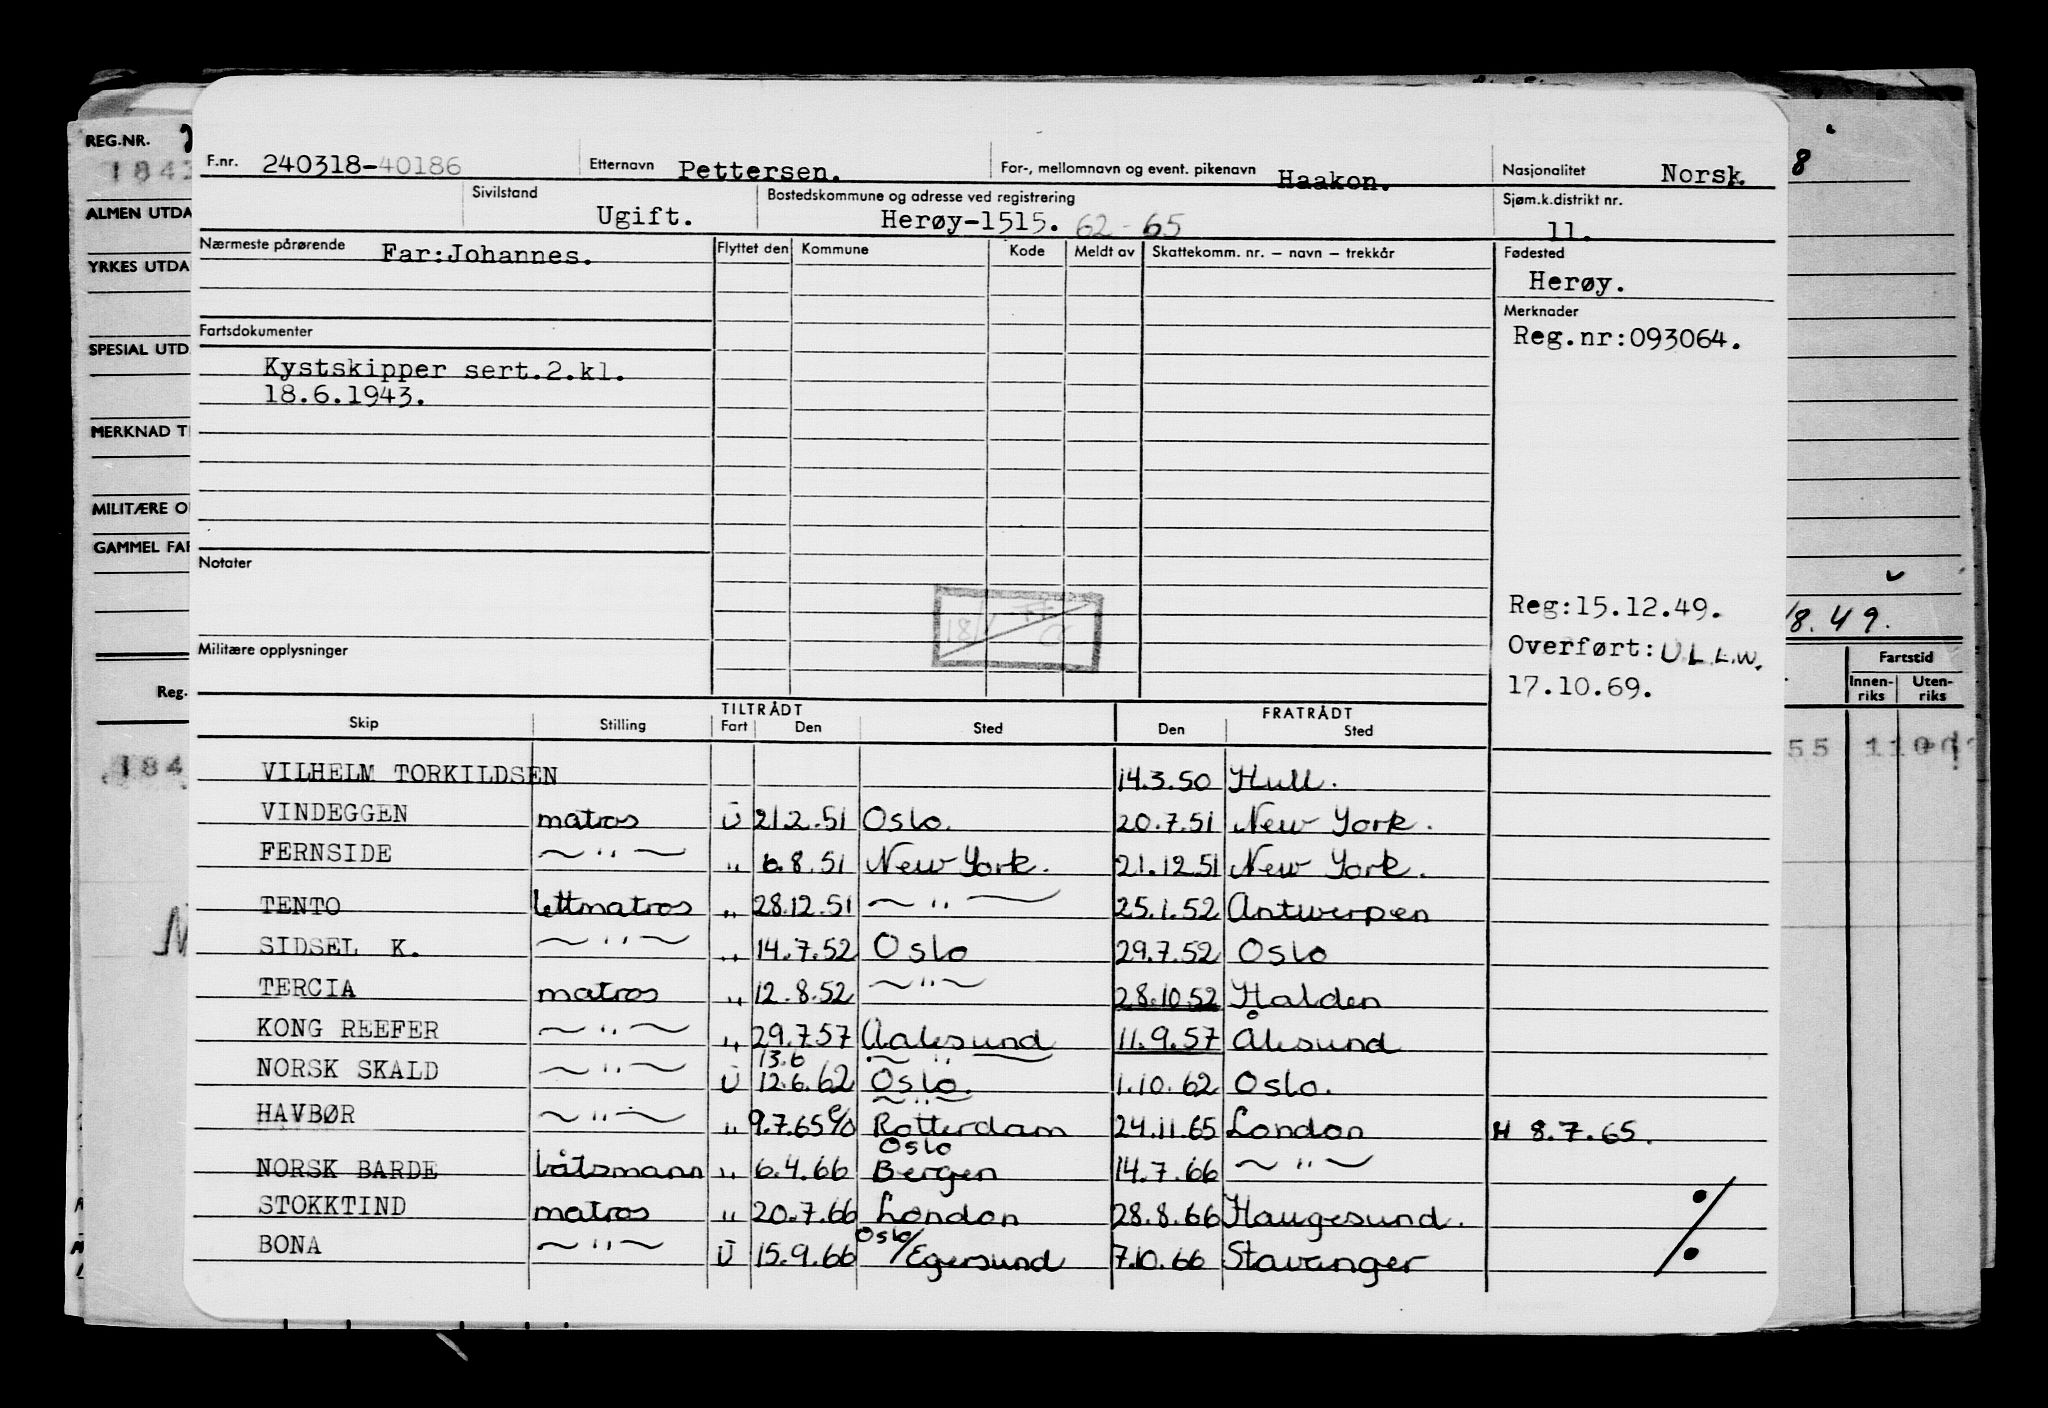 REG.NR.
184
ALMEN UTDA
YRKES UTDA
SPESIAL UTD
MERKNAD T
MILITÆRE O
GAMMEL FAR
Reg.
184
F.nr. 240318-40186 Etternavn Pettersen. For-, mellomnavn og event. pikenavn Haakon. Nasjonalitet Norsk.
Sivilstand Ugift. Bostedskommune og adresse ved registrering Herøy-1515. 62-65 Sjøm.k.distrikt nr. 11.
Nærmeste pårørende Far:Johannes. Flyttet den Kommune Kode Meldt av Skattekomm. nr. – navn – trekkår Fødested
Herøy.
Merknader
Reg.nr:093064.
Fartsdokumenter
Kystskipper sert.2.kl.
18.6.1943.
Notater
Reg:15.12.49.
Militære opplysninger
Overført: U.L.L.W.
17.10.69.
TILTRÅDT FRATRÅDT
Skip Stilling Fart Den Sted Den Sted
VILHELM TORKILDSEN 14.3.50 Hull.
VINDEGGEN matros U 21.2.51 Oslo. 20.7.51 New York.
FERNSIDE ~ " ~ " 6.8.51 New York. 21.12.51 New York.
TENTO lettmatros " 28.12.51 ~ " ~ 25.1.52 Antwerpen
SIDSEL K. ~ " ~ " 14.7.52 Oslo 29.7.52 Oslo
TERCIA matros " 12.8.52 ~ " ~ 28.10.52 Halden
KONG REEFER ~ " ~ " 29.7.57 Aalesund 11.9.57 Ålesund
13.6 ~ " ~
NORSK SKALD ~ " ~ U 12.6.62 Oslo. 1.10.62 Oslo.
~ " ~
HAVBØR ~ " ~ " 9.7.65 Rotterdam 24.11.65 London H 8.7.65.
Oslo
NORSK BARDE båtsmann " 6.4.66 Bergen 14.7.66 ~ " ~
STOKKTIND matros " 20.7.66 London 28.8.66 Haugesund.
BONA ~ " ~ U 15.9.66 Oslo/Egersund 7.10.66 Stavanger
8
8.49.
Fartstid
Innen-
riks
Uten-
riks
55